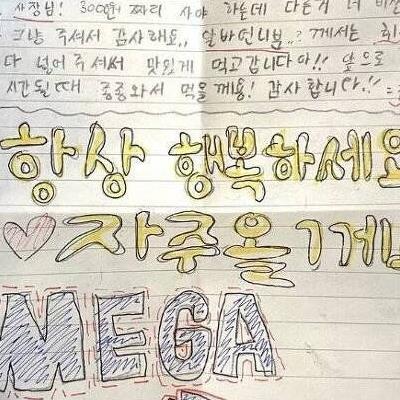 사장님! 3000원 짜리 사야 하는데 다른거 더 비
그냥 주셔서 감사해요,, 알바언니분..? 께서는
다 넣어주셔서 맛있게 먹고갑니다아!! 앞으로
시간될때 종종와서 먹을께용! 감사합니다.!!
항상 행복하세요
♡ 자주올게
MEGA